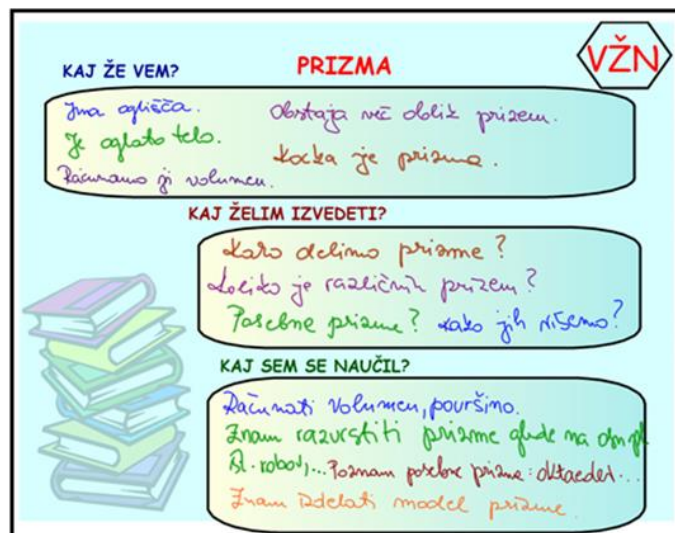 VŽN
KAJ ŽE VEM?
PRIZMA
Ima oglišča.
Obstaja več oblik prizem.
Je oglato telo.
Kocka je prizma.
Računamo ji volumen.
KAJ ŽELIM IZVEDETI?
Kako delimo prizme?
Koliko je različnih prizem?
Posebne prizme? Kako jih rišemo?
KAJ SEM SE NAUČIL?
Računati volumen, površino.
Znam razvrstiti prizme glede na osn. pl.
št. robov,... Poznam posebne prizme: oktaeder...
Znam izdelati model prizme.